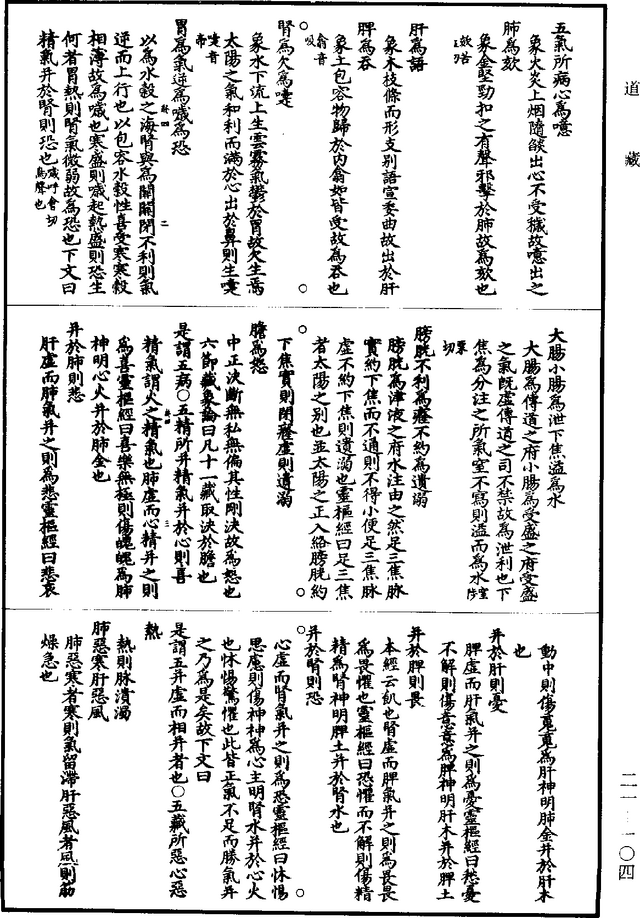 道藏
五氣所病心為噫
象火炎上烟隨燄出心不受穢故噫出之
肺為欬
象金堅勁扣之有聲邪擊於肺故為欬也
肝為語
象木枝條而形支别語宣委曲故出於肝
脾為吞
象土包容物歸於内翕如皆受故為吞也
翕音吸
腎為欠為嚏
象水下流上生雲霧氣鬱於胃故欠生焉
太陽之氣和利而滿於心出於鼻則生嚏
嚏音帝
胃為氣逆為噦為恐
以為水穀之海腎與為關關閉不利則氣
逆而上行也以包容水穀性喜受寒寒穀
相薄故為噦也寒盛則噦起熱盛則恐生
何者胃熱則腎氣微弱故為恐也下文曰
精氣并於腎則恐也
大腸小腸為泄下焦溢為水
大腸為傳道之府小腸為受盛之府受盛
之氣旣虛傳道之司不禁故為泄利也下
焦為分注之所氣室不寫則溢而為水
膀胱不利為癃不約為遺溺
膀胱為津液之府水注由之然足三焦脉
實約下焦而不通則不得小便足三焦脉
虛不約下焦則遺溺也靈樞經曰足三焦
者太陽之别也並太陽之正入絡膀胱約
下焦實則閉癃虛則遺溺
膽為怒
中正決斷無私無偏其性剛決故為怒也
六節藏象論曰凡十一藏取決於膽也
是謂五病○五精所并精氣并於心則喜
精氣謂火之精氣也肺虛而心精并之則
為喜靈樞經曰喜樂無極則傷魄魄為肺
神明心火并於肺金也
并於肺則悲
肝虛而肺氣并之則為悲靈樞經曰悲哀
動中則傷䰟䰟為肝神明肺金并於肝木
也
并於肝則憂
脾虛而肝氣并之則為憂靈樞經曰愁憂
不解則傷意意為脾神明肝木并於脾土
并於脾則畏
本經云飢也腎虛而脾氣并之則為畏畏
為畏懼也靈樞經曰恐懼而不解則傷精
精為腎神明脾土并於腎水也
并於腎則恐
心虛而腎氣并之則為恐靈樞經曰怵惕
思慮則傷神神為心主明腎水并於心火
也怵惕驚懼也此皆正氣不足而勝氣并
之乃為是矣故下文曰
是謂五并虛而相并者也○五藏所惡心惡
熱
熱則脉潰濁
肺惡寒肝惡風
肺惡寒者寒則氣留滯肝惡風者風則筋
燥急也
二一—一〇四